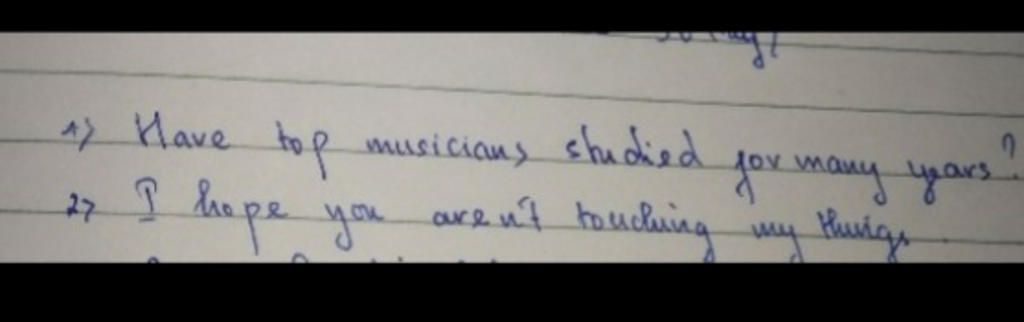 1> Have top musicians studied for many years?
2> I hope you aren't touching my things.